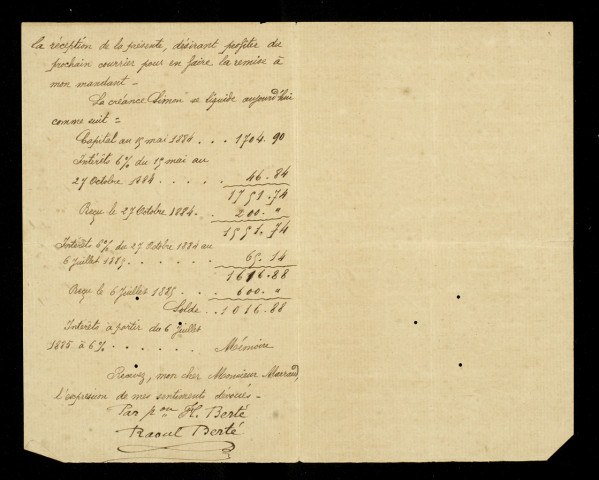 la réception de la présente, désirant profiter du
prochain courrier pour en faire la remise à
mon mandant -
La créance Simon se liquide aujourd'hui
comme suit =
Capital au 15 mai 1884 . . . 1704. 90
Intérêts 6% du 15 mai au
27 Octobre 1884 . . . . . 46. 84
1751. 74
Reçu le 27 Octobre 1884 . . 200. "
1551. 74
Intérêts 6% du 27 Octobre 1884 au
6 Juillet 1885 . . . . . . . 65. 14
1616. 88
Reçu le 6 Juillet 1885 . . . . 600. "
Solde . . 1016. 88
Intérêts à partir du 6 Juillet
1885 à 6% . . . . . . Mémoire
Recevez, mon cher Monsieur
l'expression de mes sentiments dévoués -
Par pon H. Berté
Raoul Berté